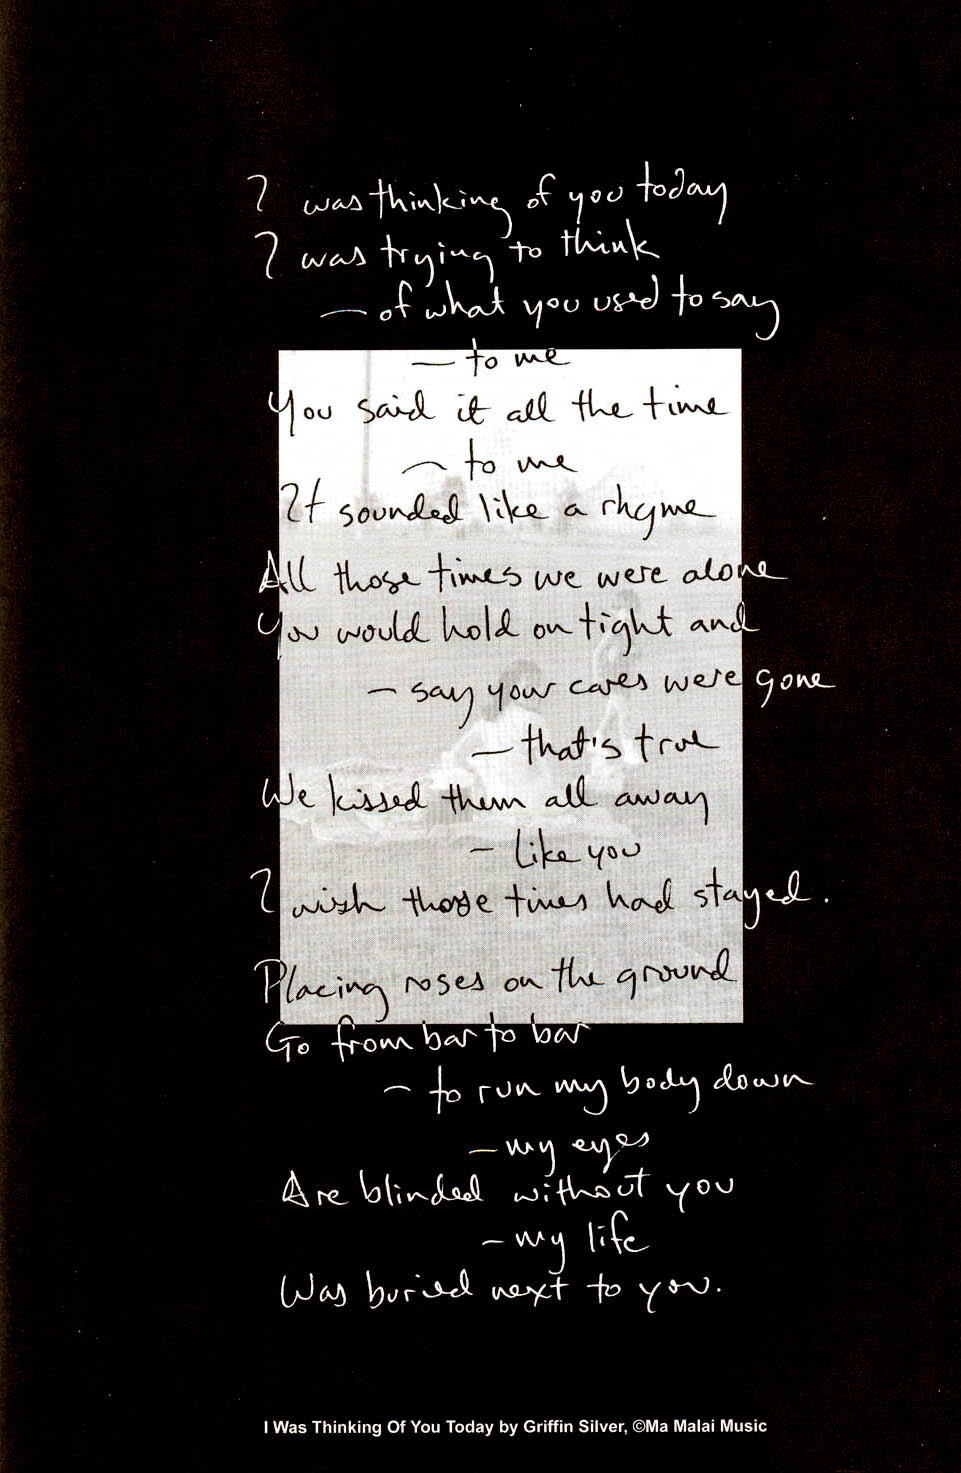 I was thinking of you today
I was trying to think
— of what you used to say
— to me
You said it all the time
— to me
It sounded like a rhyme
All those times we were alone
You would hold on tight and
— say your cares were gone
— that's true
We kissed them all away
— like you
I wish those times had stayed.
Placing roses on the ground
Go from bar to bar
— to run my body down
— my eyes
Are blinded without you
— my life
Was buried next to you.
I Was Thinking Of You Today by Griffin Silver, ©Ma Malai Music